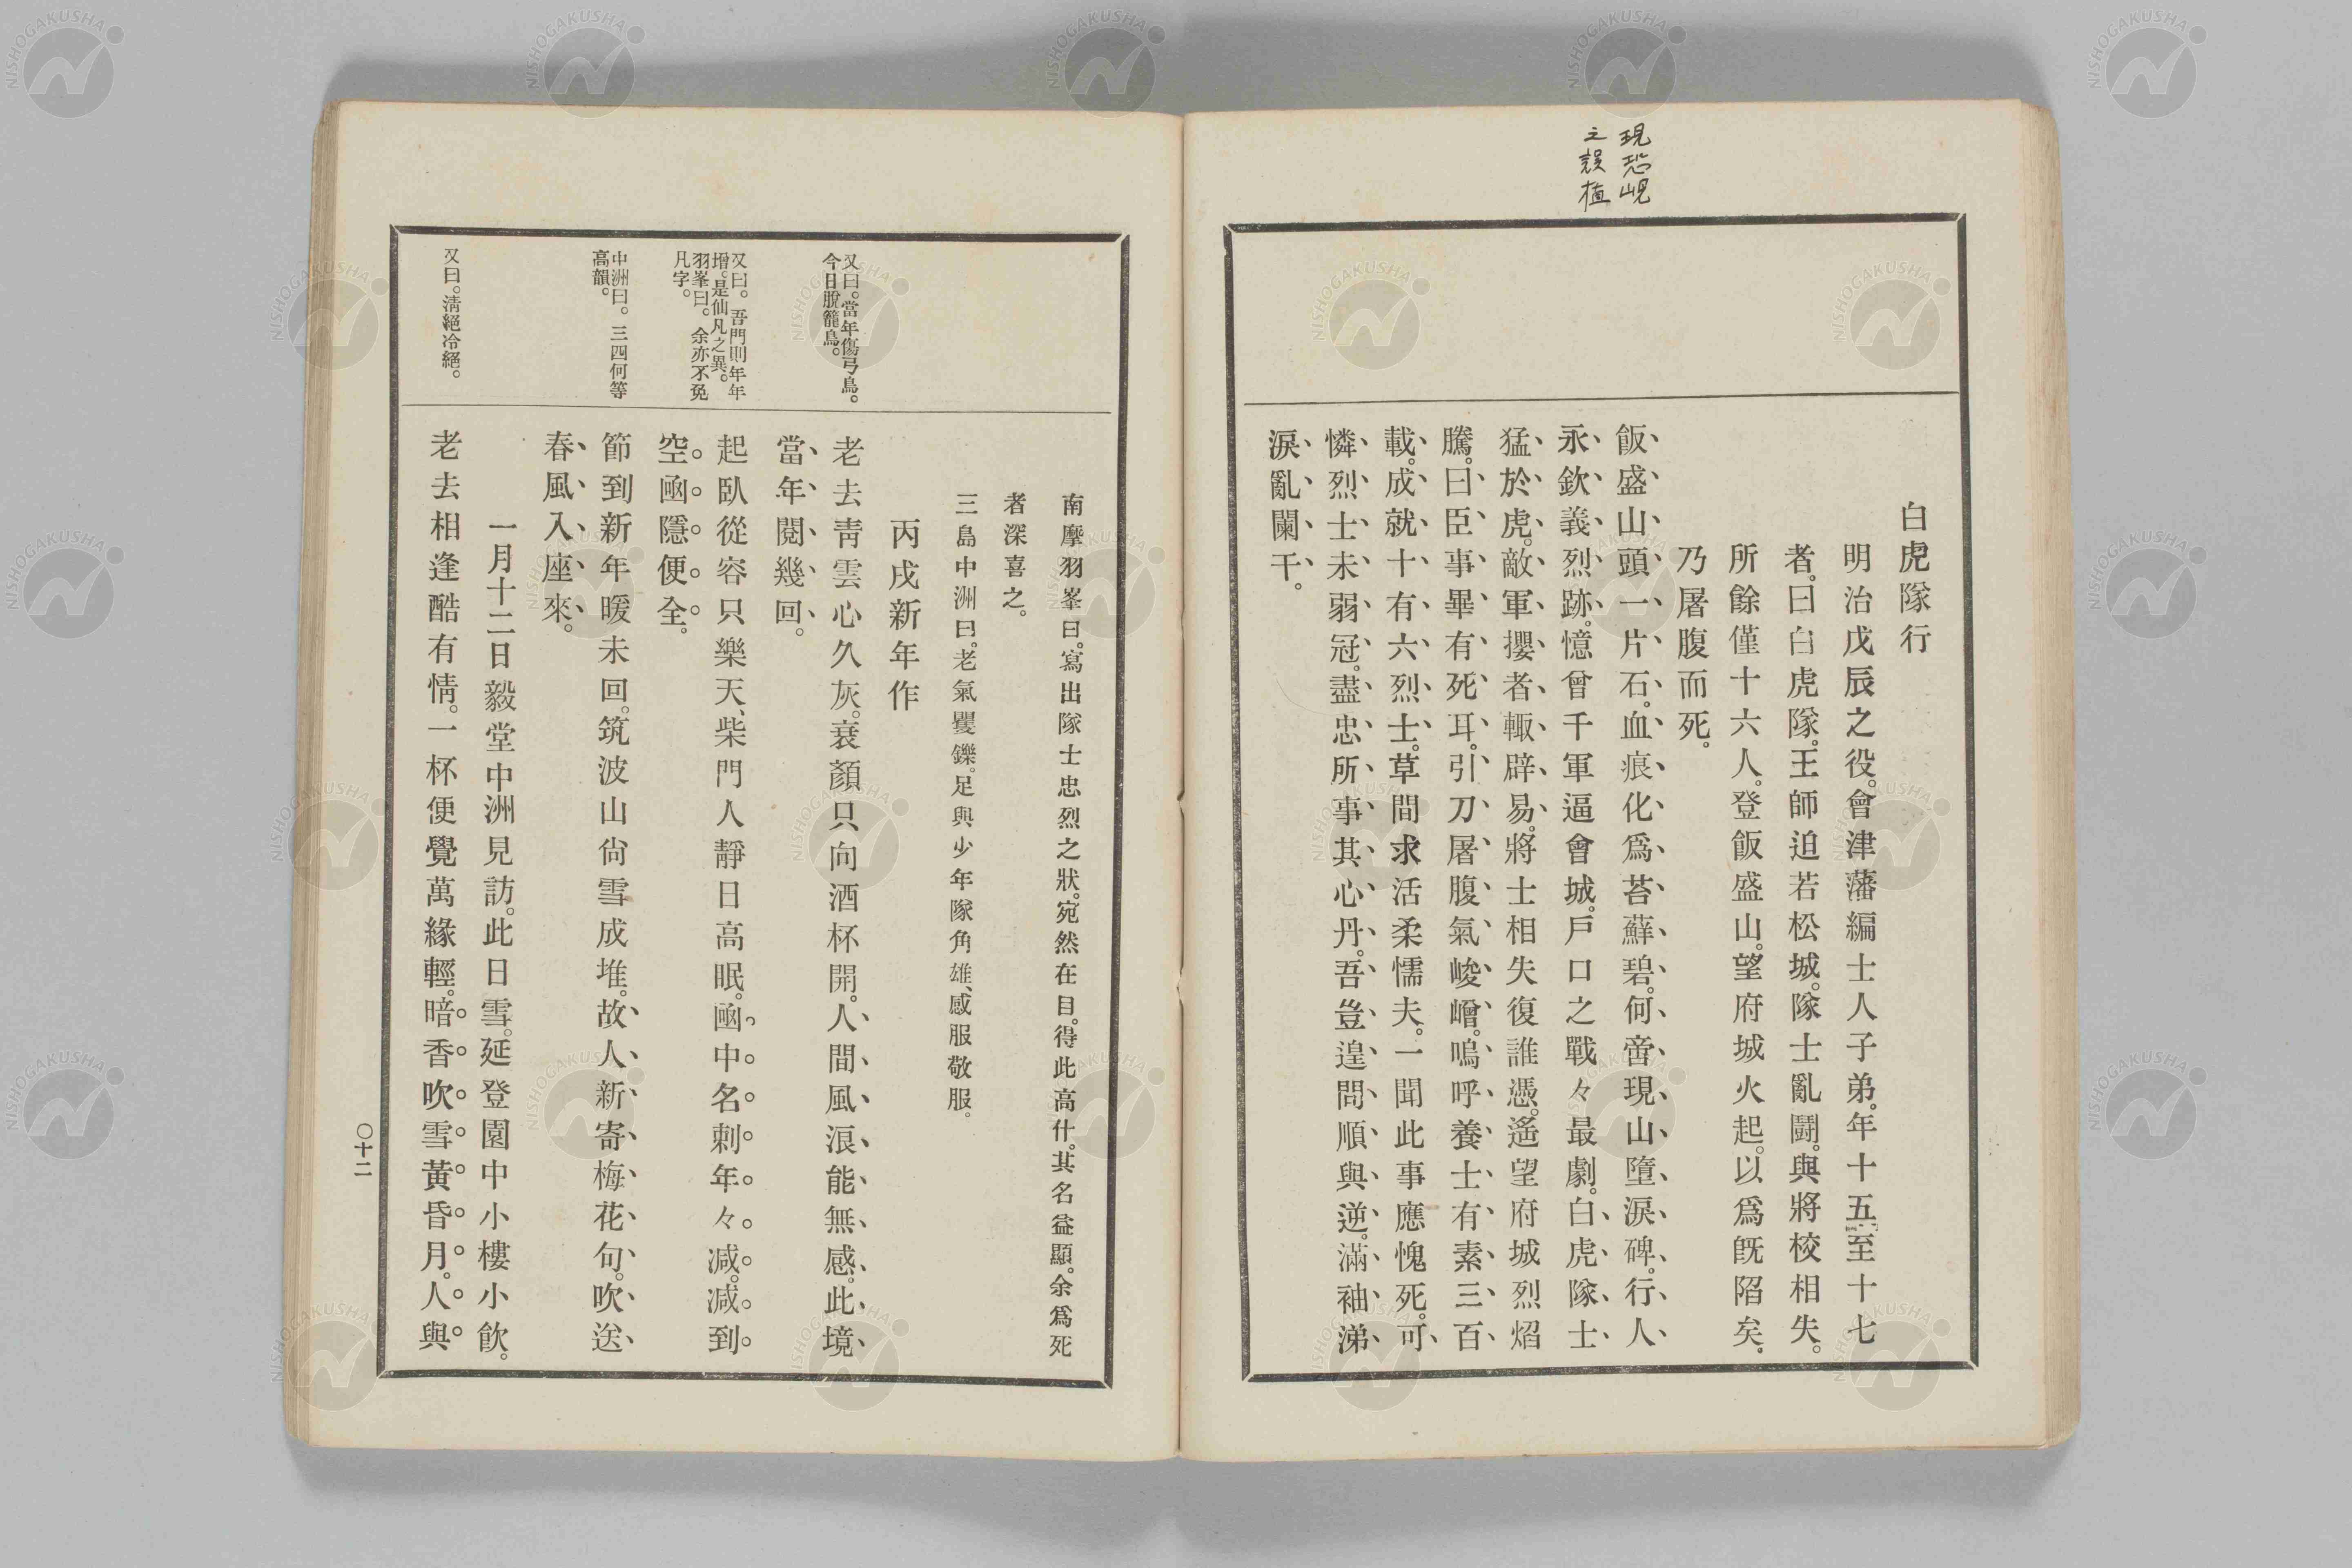 現恐峴
之誤植
白虎隊行
明治戊辰之役。會津藩編士人子弟。年十五至十七
者。曰白虎隊。王師迫若松城。隊士亂鬪。與將校相失。
所餘僅十六人。登飯盛山。望府城火起。以爲旣陷矣。
乃屠腹而死。
飯盛山頭一片石。血痕化爲苔蘚碧。何啻現山墮淚碑。行人
永欽義烈跡。憶曾千軍逼會城。戶口之戰々最劇。白虎隊士
猛於虎。敵軍攖者輙辟易。將士相失復誰憑。遙望府城烈焰
騰。曰臣事畢有死耳。引刀屠腹氣崚嶒。嗚呼養士有素三百
載。成就十有六烈士。草間求活柔懦夫。一聞此事應愧死。可
憐烈士未弱冠。盡忠所事其心丹。吾豈遑問順與逆。滿袖涕
淚亂闌干。
南摩羽峯曰。寫出隊士忠烈之狀。宛然在目。得此高什。其名益顯。余爲死
者深喜之。
三島中洲曰。老氣矍鑠。足與少年隊角雄、感服敬服。
丙戌新年作
又曰。當年傷弓鳥。
今日脫籠鳥。
老去靑雲心久灰。衰顏只向酒杯開。人間風浪能無感。此境
當年閱幾回。
又曰。吾門則年年
增。是仙凡之異。
羽峯曰。余亦不免
凡字。
起臥從容只樂天、柴門人靜日高眠。凾中名刺年々減。減到
空凾隱便全。
中洲曰。三四何等
高韻。
節到新年暖未回。筑波山尙雪成堆。故人新寄梅花句。吹送
春風入座來。
一月十二日毅堂中洲見訪。此日雪。延登園中小樓小飮。
又曰。淸絕冷絕。
老去相逢酷有情。一杯便覺萬緣輕。暗香吹雪黃昏月。人與
〇十二
NISHOGAKUSHA